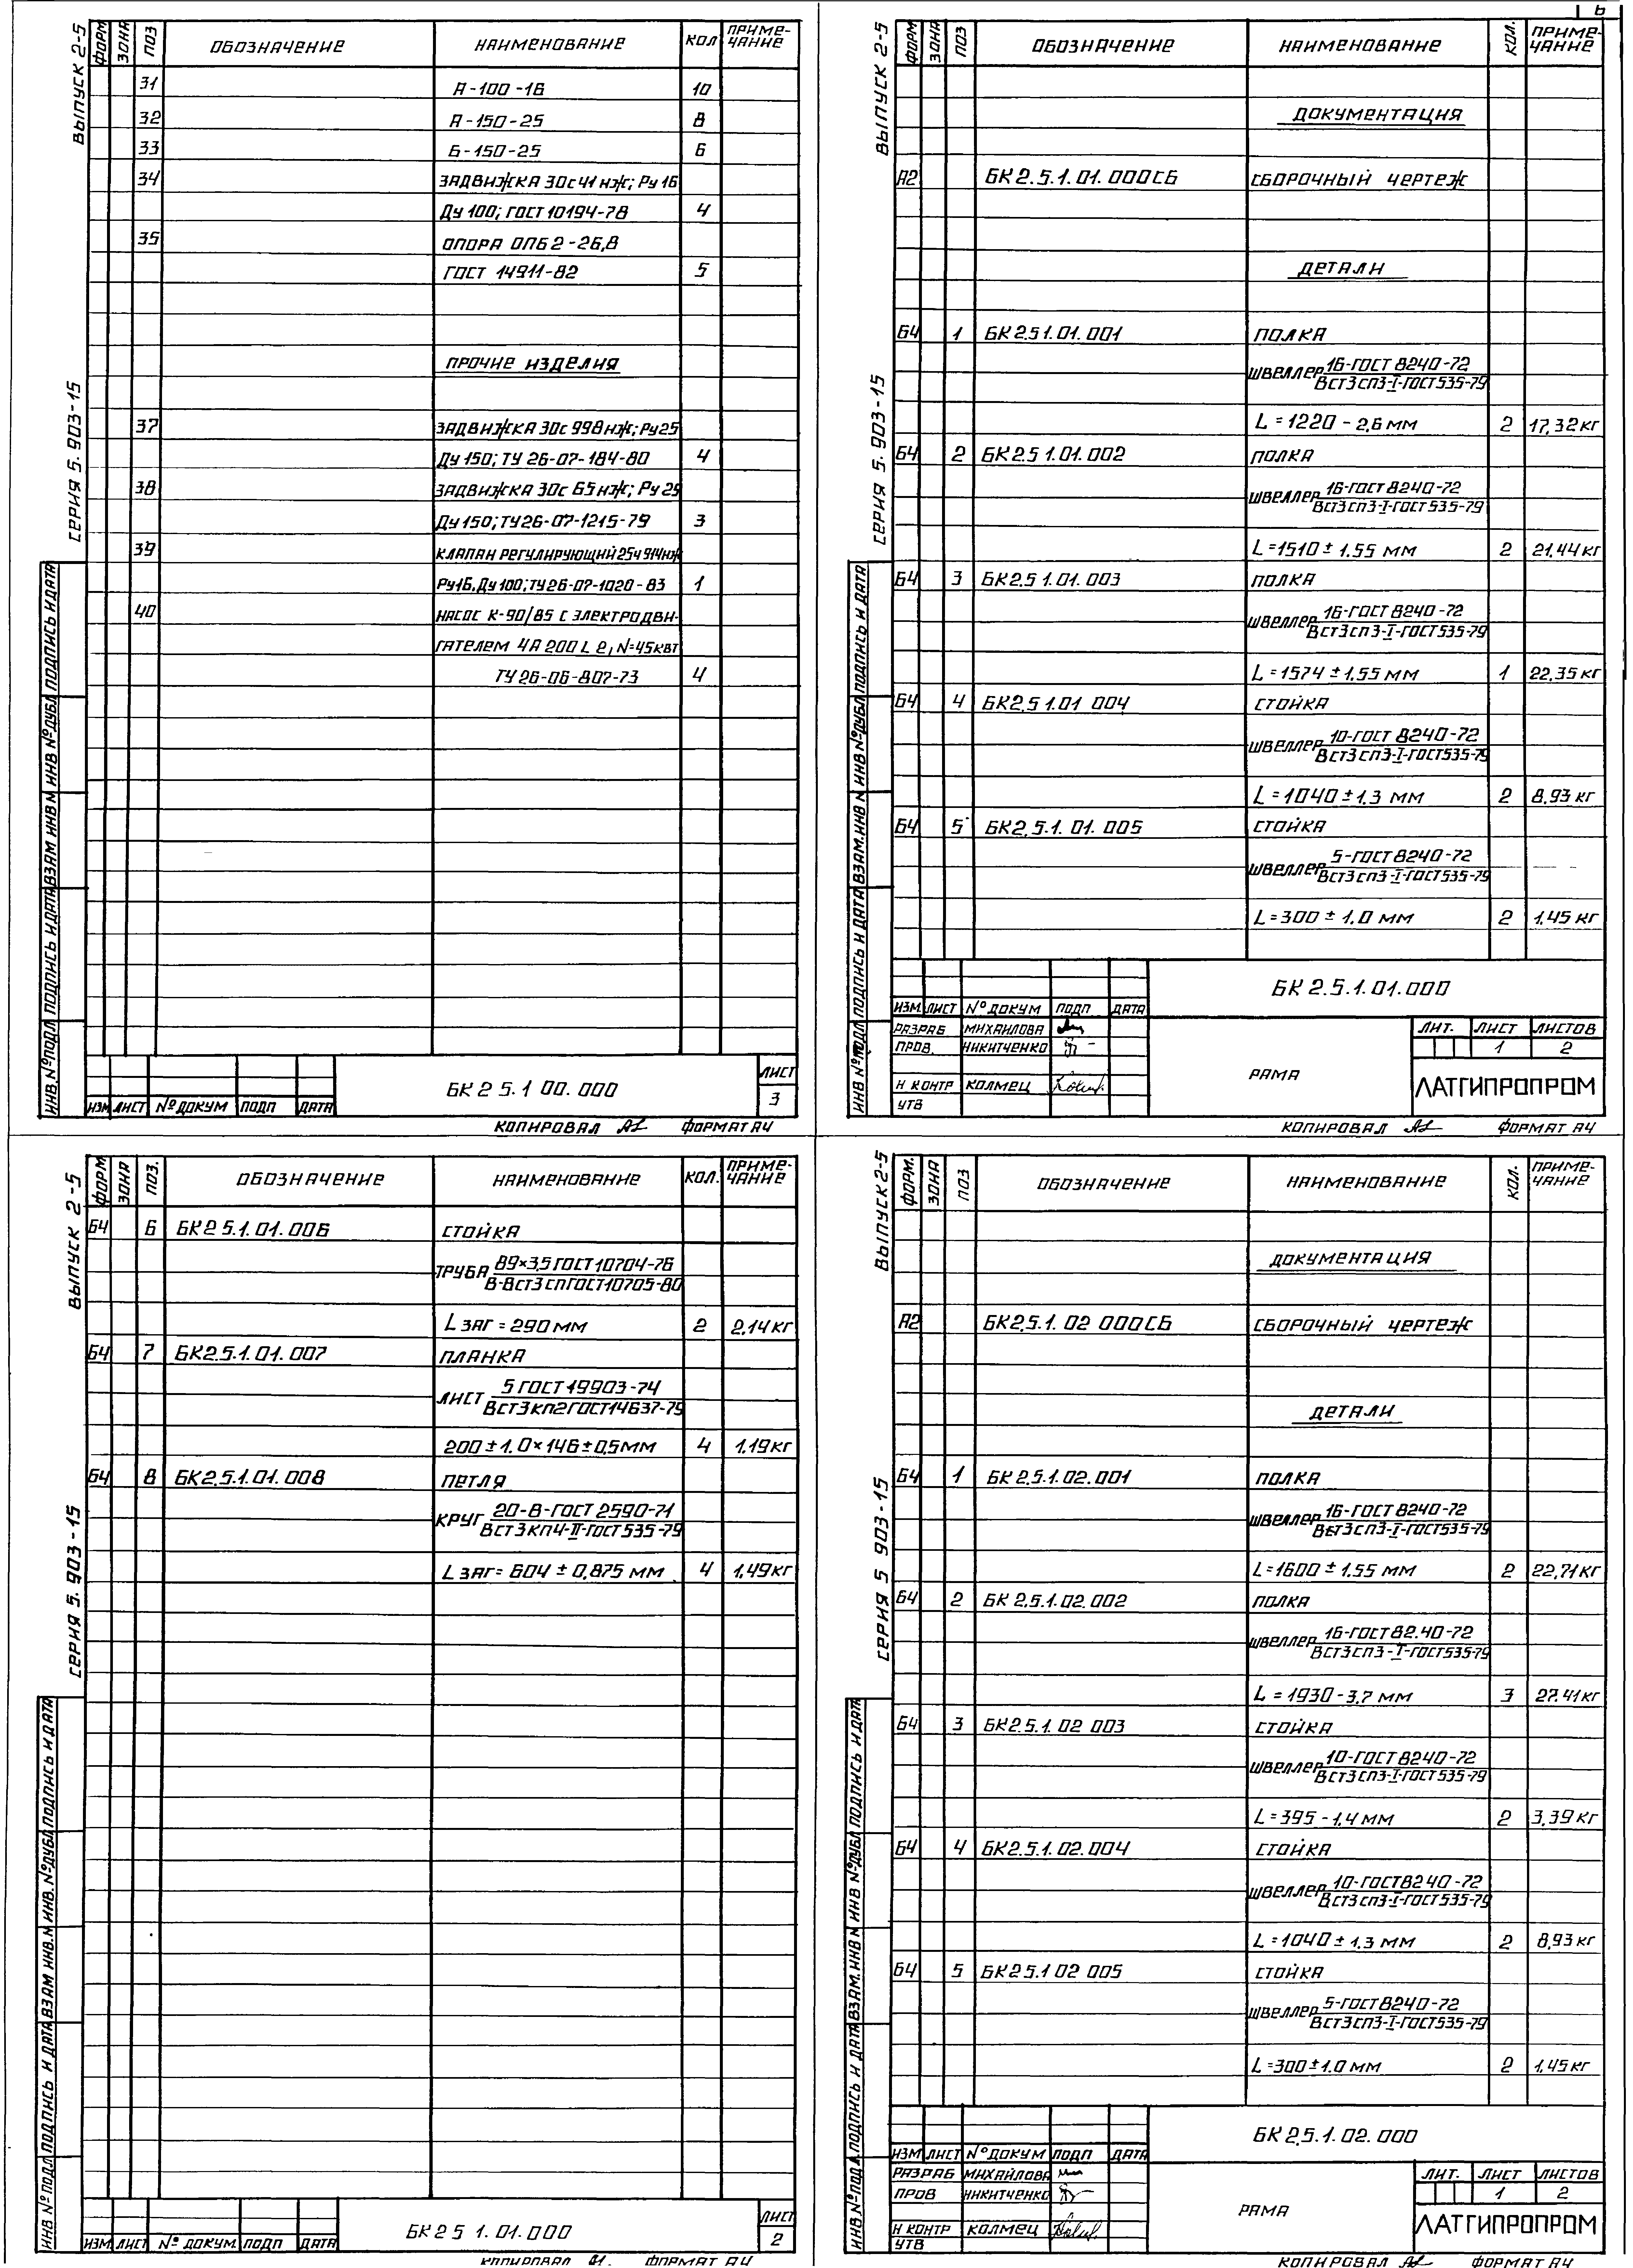 6
ВЫПУСК 2-5
СЕРИЯ 5. 903-15
ФОРМ ЗОНА ПОЗ ОБОЗНАЧЕНИЕ НАИМЕНОВАНИЕ КОЛ ПРИМЕ-ЧАНИЕ
31 А-100-16 10
32 А-150-25 8
33 Б-150-25 6
34 ЗАДВИЖКА 30с41нж; Ру 16
Ду 100; ГОСТ 10194-78 4
35 ОПОРА ОПБ2-26,8
ГОСТ 14911-82 5
ПРОЧИЕ ИЗДЕЛИЯ
37 ЗАДВИЖКА 30с 998нж; Ру25
Ду 150; ТУ 26-07-184-80 4
38 ЗАДВИЖКА 30с 65нж; Ру 25
Ду 150; ТУ26-07-1215-79 3
39 КЛАПАН РЕГУЛИРУЮЩИЙ 25ч 914нж
Ру16, Ду 100; ТУ26-07-1020-83 1
40 НАСОС К-90/85 С ЭЛЕКТРОДВИ-
ГАТЕЛЕМ 4А 200 L 2, N=45кВт
ТУ 26-06-807-73 4
ИНВ. № ПОДЛ ПОДПИСЬ И ДАТА ВЗАМ ИНВ № ИНВ № ДУБЛ ПОДПИСЬ И ДАТА
ИЗМ ЛИСТ № ДОКУМ ПОДП ДАТА
БК 2 5.1 00. 000
ЛИСТ
3
КОПИРОВАЛ ФОРМАТ А4
ВЫПУСК 2-5
СЕРИЯ 5.903-15
ФОРМ ЗОНА ПОЗ ОБОЗНАЧЕНИЕ НАИМЕНОВАНИЕ КОЛ. ПРИМЕ-ЧАНИЕ
ДОКУМЕНТАЦИЯ
А2 БК 2.5.1.01.000СБ СБОРОЧНЫЙ ЧЕРТЕЖ
ДЕТАЛИ
Б4 1 БК 2.5.1.01.001 ПОЛКА
ШВЕЛЛЕР 16-ГОСТ 8240-72
ВСт3сп3-I-ГОСТ535-79
L=1220-2,6 мм 2 17,32 кг
Б4 2 БК 2.5 1.01.002 ПОЛКА
ШВЕЛЛЕР 16-ГОСТ 8240-72
ВСт3сп3-I-ГОСТ 535-79
L=1510±1.55 мм 2 21,44 кг
Б4 3 БК 2.5 1.01.003 ПОЛКА
ШВЕЛЛЕР 16-ГОСТ 8240-72
ВСт3сп3-I-ГОСТ535-79
L=1574±1,55 мм 1 22,35 кг
Б4 4 БК2.5 1.01 004 СТОЙКА
ШВЕЛЛЕР 10-ГОСТ 8240-72
ВСт3сп3-I-ГОСТ535-79
L=1040±1.3 мм 2 8,93 кг
Б4 5 БК2.5.1.01.005 СТОЙКА
ШВЕЛЛЕР 5-ГОСТ 8240-72
ВСт3сп3-I-ГОСТ535-79
L=300±1.0 мм 2 1,45 кг
ИНВ № ПОДЛ ПОДПИСЬ И ДАТА ВЗАМ. ИНВ № ИНВ № ДУБЛ ПОДПИСЬ И ДАТА
БК 2.5.1.01.000
ИЗМ. ЛИСТ № ДОКУМ ПОДП ДАТА
РАЗРАБ МИХАЙЛОВА
ПРОВ. НИКИТЧЕНКО
Н КОНТР КОЛМЕЦ
УТВ
РАМА
ЛИТ. ЛИСТ ЛИСТОВ
1 2
ЛАТГИПРОПРОМ
КОПИРОВАЛ ФОРМАТ А4
ВЫПУСК 2-5
СЕРИЯ 5. 903-15
ФОРМ ЗОНА ПОЗ. ОБОЗНАЧЕНИЕ НАИМЕНОВАНИЕ КОЛ. ПРИМЕ-ЧАНИЕ
Б4 6 БК2 5.1.01.006 СТОЙКА
ТРУБА 89×3,5 ГОСТ 10704-76
В-ВСт3 сп ГОСТ 10705-80
L заг=290 мм 2 2,14 кг
Б4 7 БК2.5.1.01.007 ПЛАНКА
ЛИСТ 5 ГОСТ 19903-74
ВСт3кп2 ГОСТ14637-79
200±1.0×146±0,5мм 4 1,19 кг
Б4 8 БК2.5.1.01.008 ПЕТЛЯ
КРУГ 20-В-ГОСТ 2590-71
ВСт3кп4-II-ГОСТ 535-79
L заг=604±0,875 мм 4 1,49 кг
ИНВ № ПОДЛ ПОДПИСЬ И ДАТА ВЗАМ ИНВ. № ИНВ. № ДУБЛ ПОДПИСЬ И ДАТА
ИЗМ. ЛИСТ № ДОКУМ. ПОДП ДАТА
БК2 5 1.01.000
ЛИСТ
2
КОПИРОВАЛ ФОРМАТ А4
ВЫПУСК 2-5
СЕРИЯ 5 903-15
ФОРМ. ЗОНА ПОЗ ОБОЗНАЧЕНИЕ НАИМЕНОВАНИЕ КОЛ. ПРИМЕ-ЧАНИЕ
ДОКУМЕНТАЦИЯ
А2 БК2.5.1.02 000СБ СБОРОЧНЫЙ ЧЕРТЕЖ
ДЕТАЛИ
Б4 1 БК 2.5.1.02.001 ПОЛКА
ШВЕЛЛЕР 16-ГОСТ 8240-72
ВСт3сп3-I-ГОСТ535-79
L=1600±1.55 мм 2 22,71 кг
Б4 2 БК 2.5.1.02.002 ПОЛКА
ШВЕЛЛЕР 16-ГОСТ 82.40-72
ВСт3сп3-I-ГОСТ535-79
L=1930-3,7 мм 3 27.41 кг
Б4 3 БК2.5.1.02 003 СТОЙКА
ШВЕЛЛЕР 10-ГОСТ 8240-72
ВСт3сп3-I-ГОСТ 535-79
L=395-1,4 мм 2 3,39 кг
Б4 4 БК2.5.1.02.004 СТОЙКА
ШВЕЛЛЕР 10-ГОСТ8240-72
ВСт3сп3-I-ГОСТ535-79
L=1040±1.3 мм 2 8,93 кг
Б4 5 БК2 5.1 02 005 СТОЙКА
ШВЕЛЛЕР 5-ГОСТ 8240-72
ВСт3сп3-I-ГОСТ535-79
L=300±1.0 мм 2 1,45 кг
ИНВ. № ПОДЛ. ПОДПИСЬ И ДАТА ВЗАМ. ИНВ № ИНВ № ДУБЛ ПОДПИСЬ И ДАТА
БК 2.5.1.02.000
ИЗМ ЛИСТ № ДОКУМ ПОДП ДАТА
РАЗРАБ МИХАЙЛОВА
ПРОВ НИКИТЧЕНКО
Н КОНТР КОЛМЕЦ
УТВ
РАМА
ЛИТ. ЛИСТ ЛИСТОВ
1 2
ЛАТГИПРОПРОМ
КОПИРОВАЛ ФОРМАТ А4